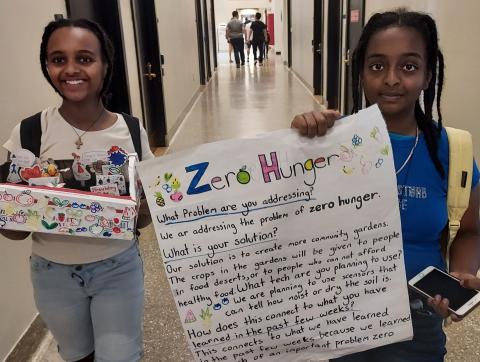 Zero Hunger
What Problem are you addressing?
We ar addressing the problem of zero hunger.
What is your solution?
Our solution is to create more community gardens.
The crops in the gardens will be given to people
in food deserts, or to people who can not afford
healthy food. What tech are you planning to use?
We are planning to use sensors that
can tell how moist or dry the soil is.
How does this connect to what you have
learned in the past few weeks?
This connects to what we have learned
in the past few weeks because we learned
of an important problem zero